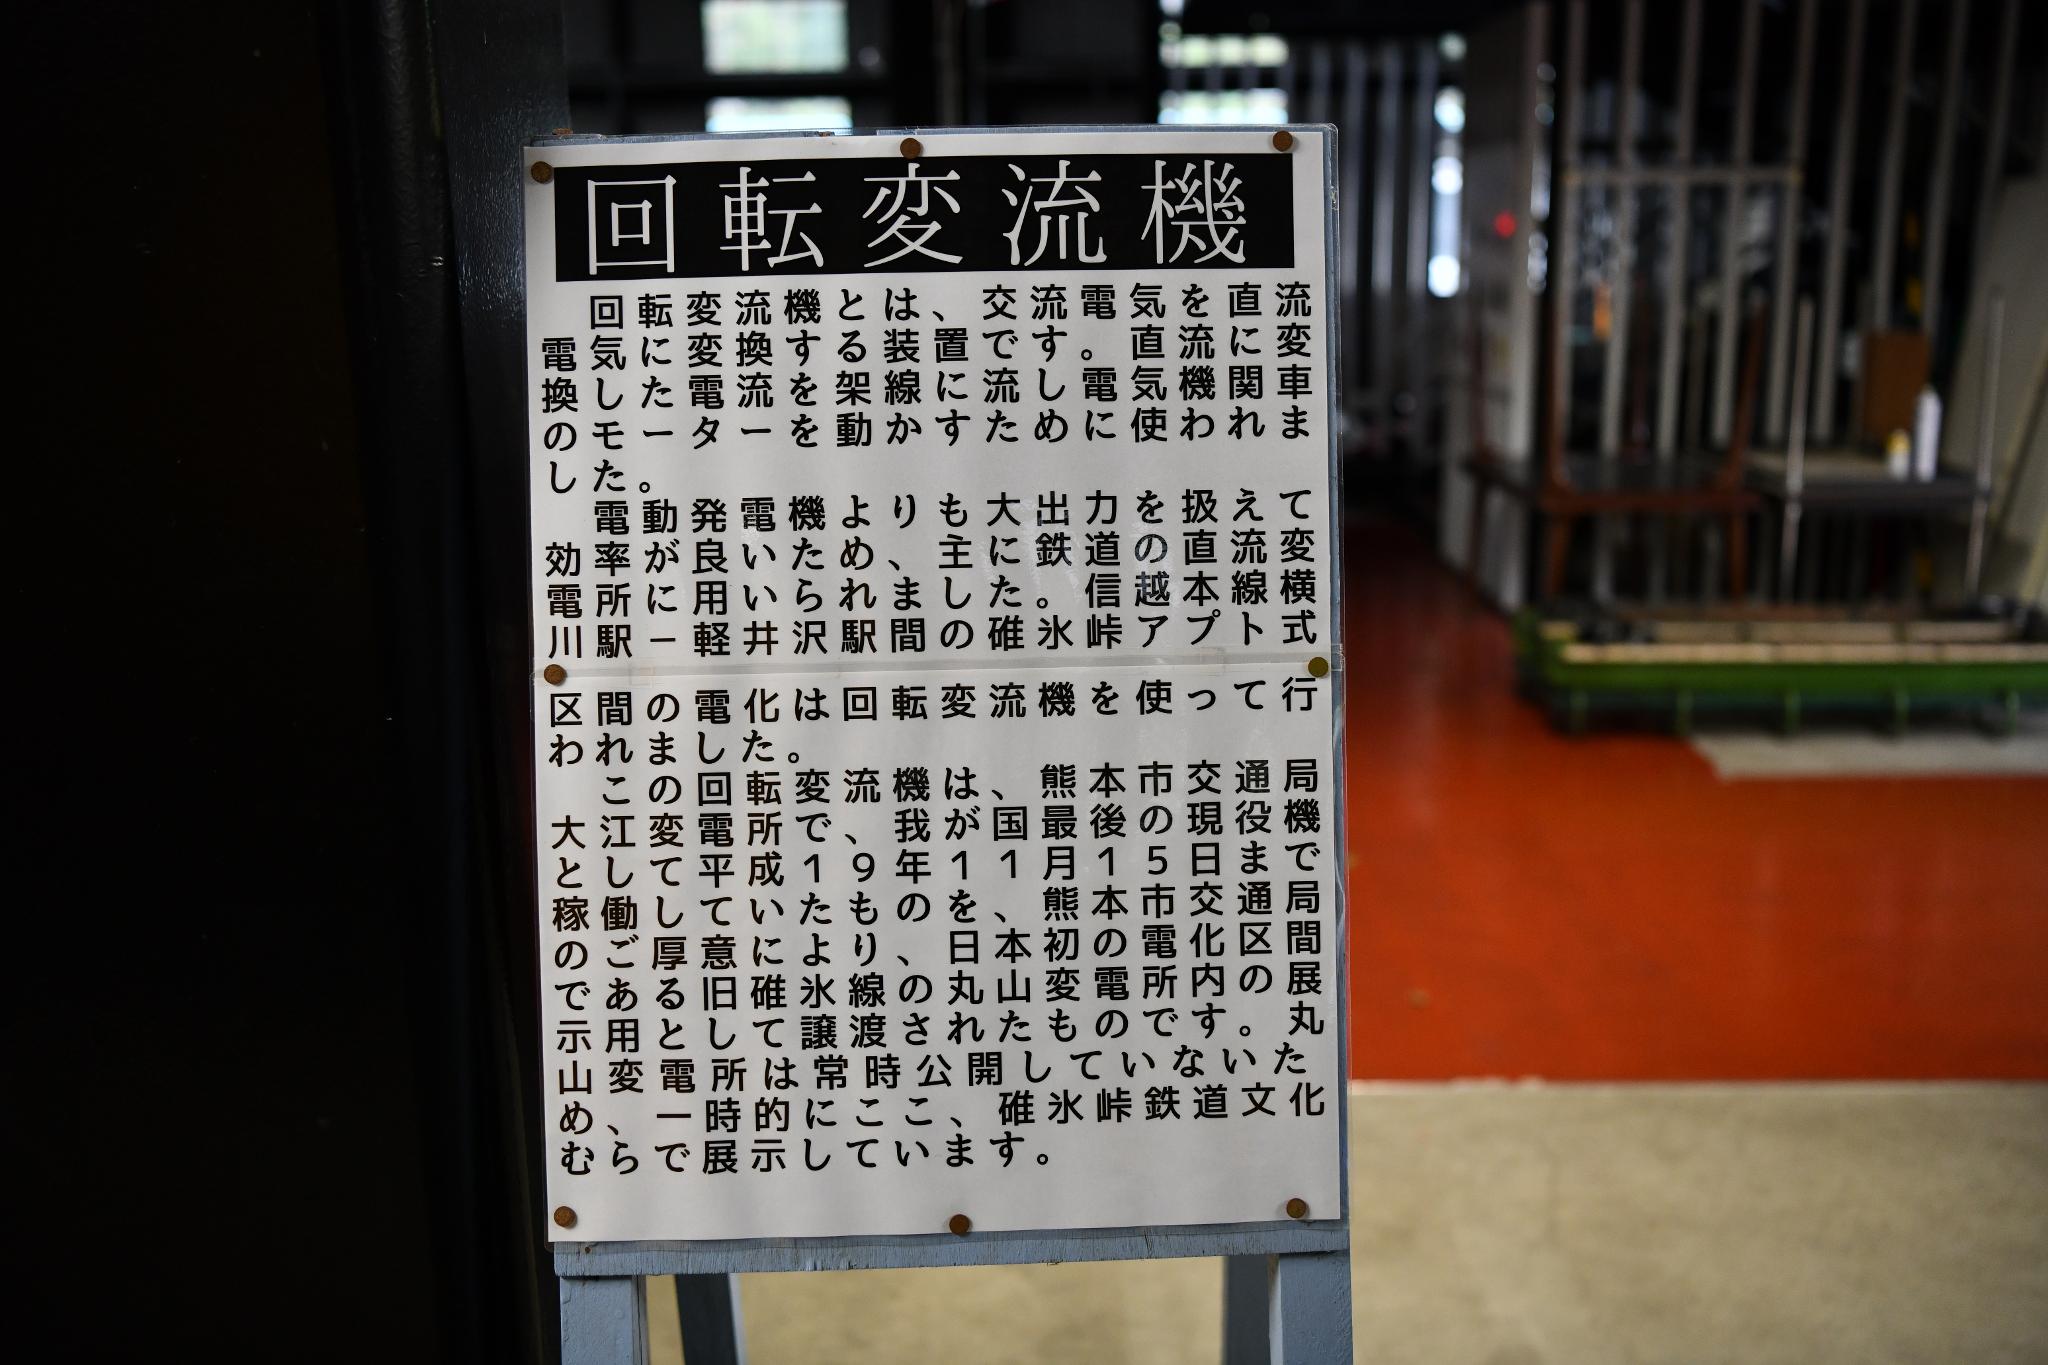 回転変流機
回転変流機とは、交流電気を直流
電気に変換する装置です。直流に変
換した電流を架線に流し電気機関車
のモーターを動かすために使われま
した。
電動発電機よりも大出力を扱えて
効率が良いため、主に鉄道の直流変
電所に用いられました。信越本線横
川駅－軽井沢駅間の碓氷峠アプト式
区間の電化は回転変流機を使って行
われました。
この回転変流機は、熊本市交通局
大江変電所で、我が国最後の現役機
として平成19年11月15日まで
稼働していたものを、熊本市交通局
のご厚意により、日本初の電化区間
である旧碓氷線の丸山変電所内の展
示用として譲渡されたものです。丸
山変電所は常時公開していないた
め、一時的にここ、碓氷峠鉄道文化
むらで展示しています。